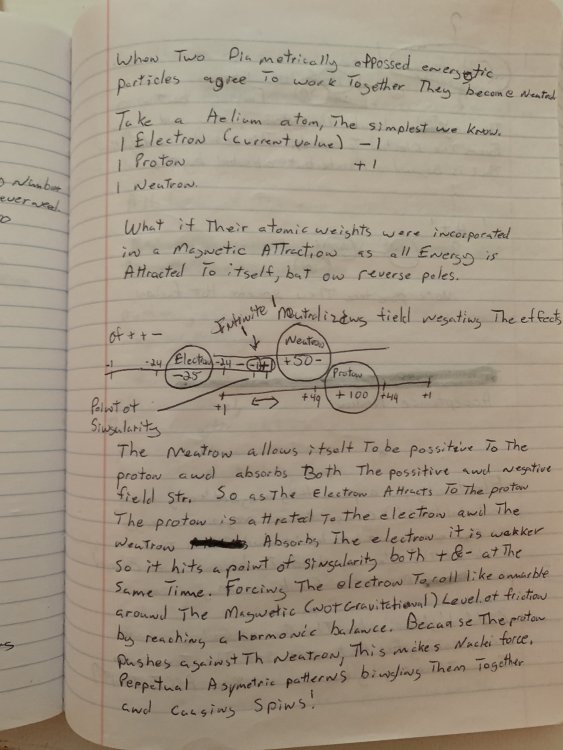 When Two Diametrically oppossed energetic
particles agree To work Together They become Neutral
Take a Helium atom, The simplest we know.
1 Electron (current value) -1
1 Proton +1
1 Neutron.
Number
ever need
What if Their atomic weights were incorporated
in a Magnetic ATTraction as all Energy is
Attracted To itself, but on reverse poles.
Infinite Neutralizing field negating The effects
of + + -
Neutron
+50-
-1 -24 Electron -24 -
-25
Proton
+100
+1 +49 +49 +1
Point of
Singularity
The Neutron allows itself To be possitive To The
proton and absorbs Both The possitive and negative
field str. So as The Electron Attracts To The proton
The proton is attrated To The electron and The
Neutron Absorbs The electron it is wakker
So it hits a point of singularity both + & - at The
Same Time. Forcing The electron To roll like a marble
around The Magnetic (Not Gravitational) Level of friction
by reaching a harmonic balance. Because The proton
pushes against Th Neutron, This makes Nuclei force.
Perpetual Asymetric patterns binding Them Together
and causing Spins!